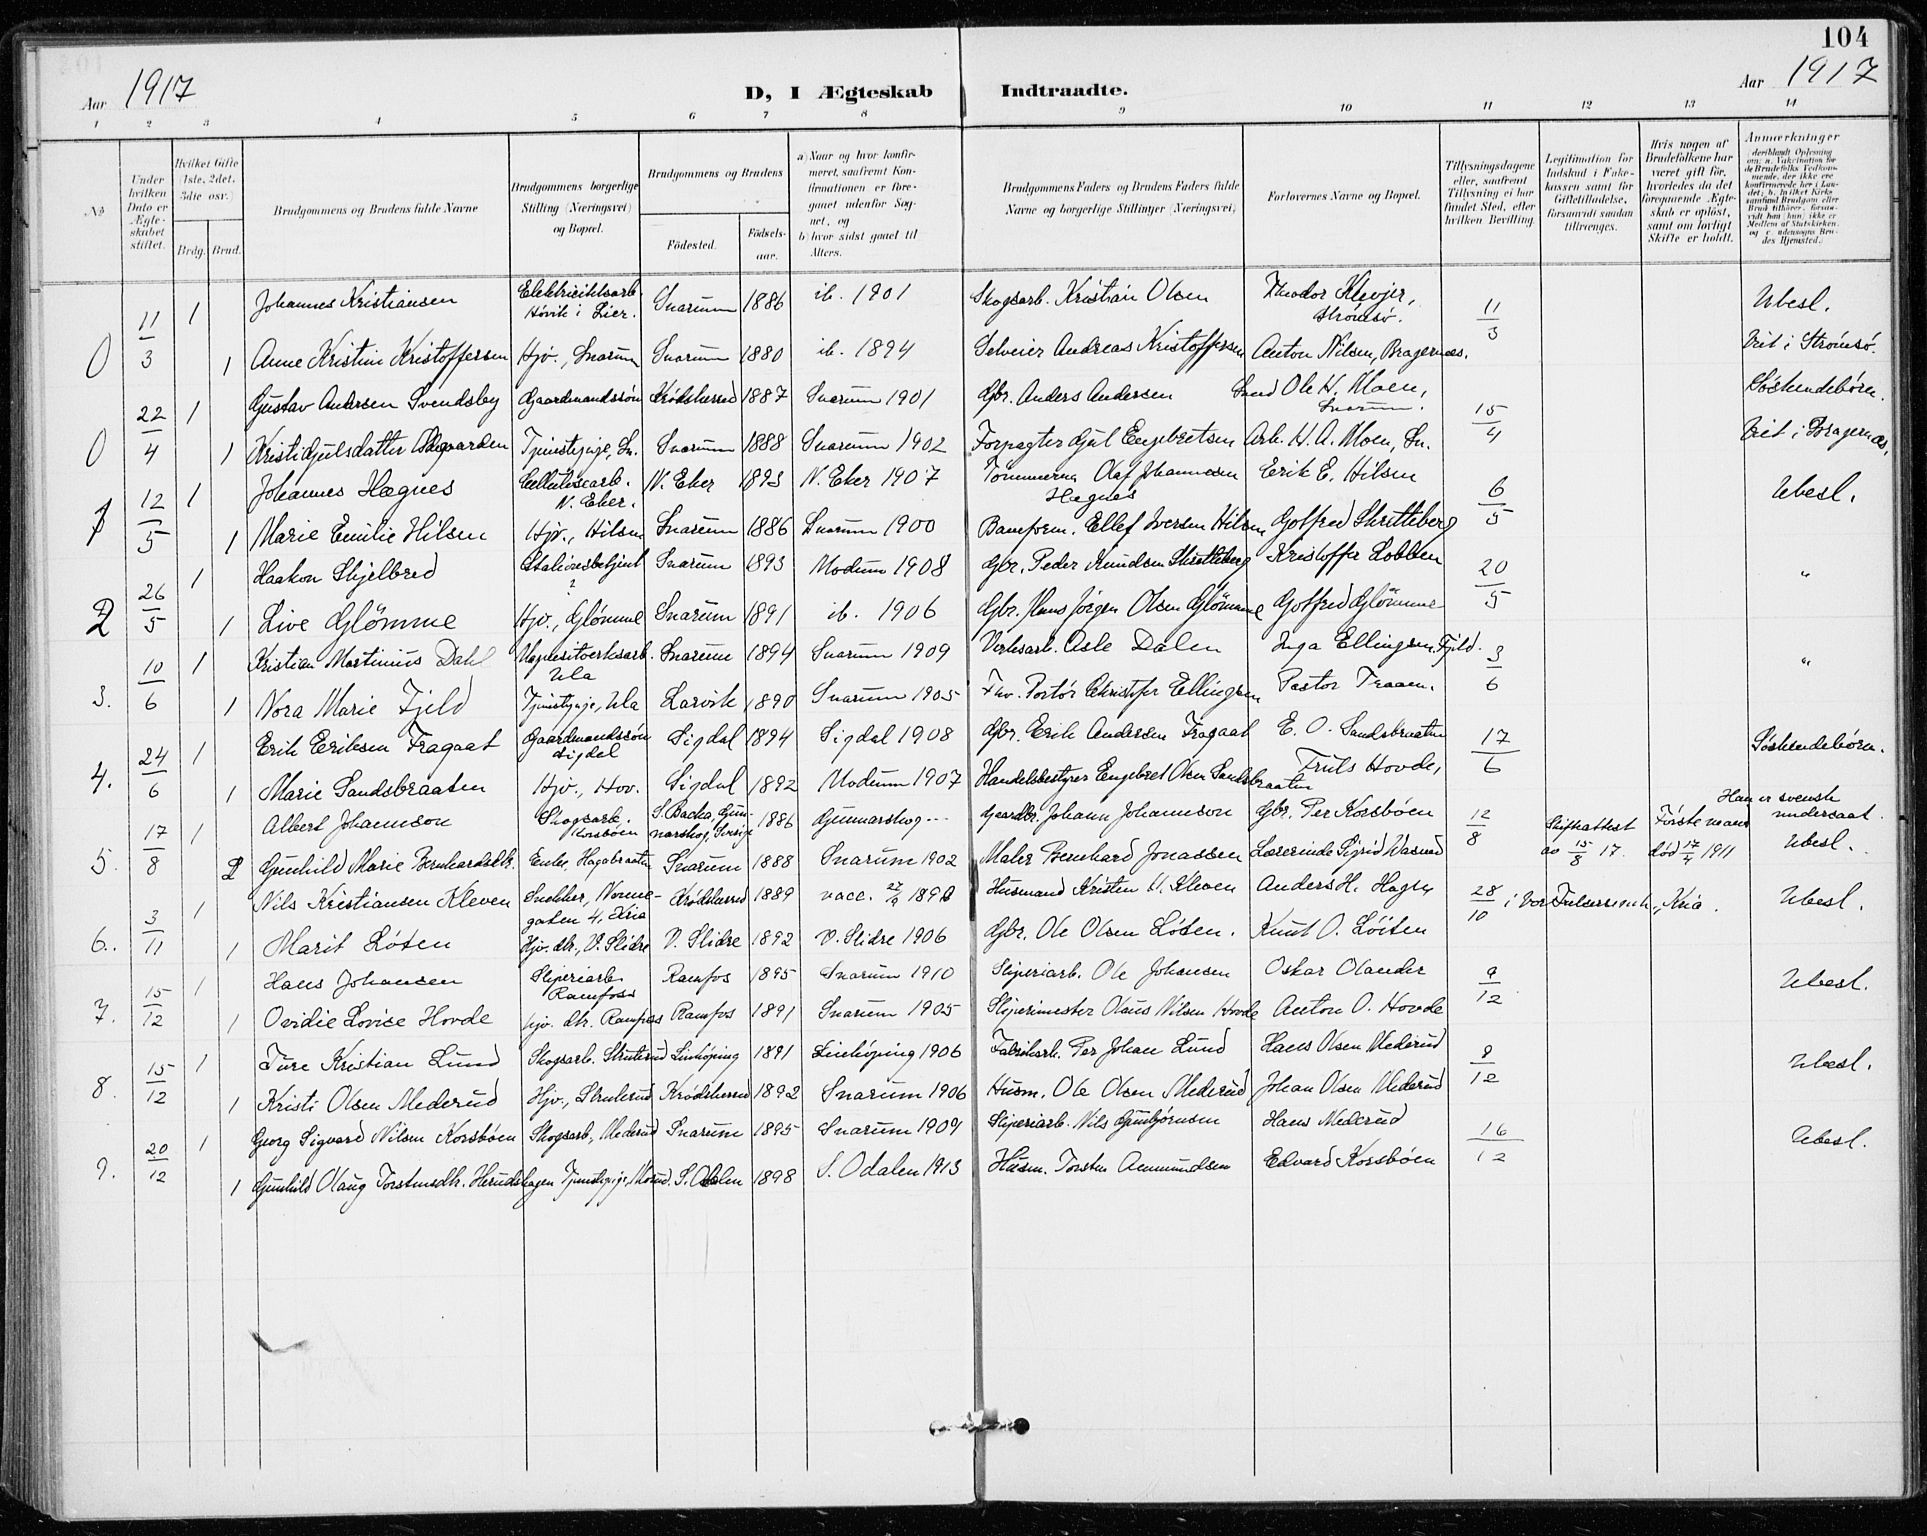 104
Aar 1917
D, I Ægteskab Indtraadte.
Aar 1917
1 2 3 4 5 6 7 8 9 10 11 12 13 14
No
Under hvilken Dato er Ægteskabet stiftet.
Hvilket Gifte (1ste, 2det, 3die osv.)
Brdg. Brud.
Brudgommens og Brudens fulde Navne
Brudgommens borgerlige Stilling (Næringsvei) og Bopæl.
Brudgommens og Brudens
Födested. Födselsaar.
a) Naar og hvor konfirmeret, saafremt Konfirmationen er foregaaet udenfor Sognet, og
b) hvor sidst gaaet til Alters.
Brudgommens Faders og Brudens Faders fulde Navne og borgerlige Stillinger (Næringsvei)
Forlovernes Navne og Bopæl.
Tillysningsdagene eller, saafremt Tillysning ei har fundet Sted, efter hvilken Bevilling.
Legitimation for Indskud i Enkekassen samt for Giftetilladelse, forsaavidt saadan tiltrænges.
Hvis nogen af Brudefolkene har været gift før, hvorledes da det foregaaende Ægteskab er oplöst, samt om lovligt Skifte er holdt.
Anmærkninger
0 11/3 1 Johannes Kristiansen Elektricitetsarb. Høvik i Lier. Snarum 1886 ib. 1901 Skogsarb. Kristian Olsen Theodor Klevjer, Strømsø. 11/3 Ubesl.
1 Anne Kristine Kristoffersen Hjv., Snarum Snarum 1880 ib. 1894 Selveier Andreas Kristoffersen Anton Nilsen, Bragernæs. Viet i Strømsø.
0 22/4 1 Gustav Andersen Svendsby Gaardmandssøn Krødsherred 1887 Snarum 1901 Gbr. Anders Andersen Ole H. Moen, Snarum. 15/4 Søskendebørn.
1 Kristi Gjulsdatter Tjenestepige, Sn. Snarum 1888 Snarum 1902 Forpagter Gjul Engebretsen Arb. H. A. Moen, Sn. Viet i Bragernæs.
1 12/5 1 Johannes Hægnes Cellulosearb. N. Eker. N. Eker 1893 N. Eker 1907 Tømmerm. Olaf Johannesen Hægnes Erik E. Hilsen 6/5 Ubesl.
1 Marie Emilie Hilsen Hjv., Hilsen Snarum 1886 Snarum 1900 Baneform. Ellef Iversen Hilsen Gotfred Skretteberg
2 26/5 1 Haakon Skjelbred Stationsbetjent ? Snarum 1893 Modum 1908 Gbr. Peder Knudsen Skretteberg Kristoffer Lobben 20/5 "
1 Live Glömme Hjv., Glömme Snarum 1891 ib. 1906 Gbr. Hans Jörgen Olsen Glömme Gotfred Glömme
3. 10/6 1 Kristian Martinius Dahl Magnesitverksarb. Ula Snarum 1894 Snarum 1909 Verksarb. Asle Dalen Inga Ellingsen Fjeld. 3/6 "
1 Nora Marie Fjeld Tjenestepige, Ula Larvik 1890 Snarum 1905 Fhv. Portör Christofer Ellingsen Pastor Traaen.
4. 24/6 1 Erik Eriksen Fragaat Gaardmandssøn Sigdal Sigdal 1894 Sigdal 1908 Gbr. Erik Andersen Fragaat E. O. Sandsbraaten 17/6 Søskendebørn.
1 Marie Sandsbraaten Hjv., Hov. Sigdal 1892 Modum 1907 Handelsbestyrer Engebret Olsen Sandsbraaten Truls Hovde,
5. 17/8 1 Albert Johannson Skogsarb. Korsbøen S. Backa, Gunnarskog, Sverige 1886 Gunnarskog --- Gaardbr. Johann Johannson Gbr. Per Korsbøen 12/8 Skifteattest av 15/8 17. Første mand død 17/4 1911 Han er svensk undersaat. Ubesl.
2 Gunhild Marie Bernhardsdtr. Enke, Hagabraaten Snarum 1888 Snarum 1902 Maler Bernhard Jonassen Lærerinde Sigrid Wasrud
6. 3/11 1 Nils Kristiansen Kleven Snekker, Nonnegaten 4, Kria Krødsherred 1889 vacc. 27/9 1890 Husmand Kristen N. Kleven Anders H. Hagen 28/10 i Vor Frelsers menh., Kria. Ubesl.
1 Marit Løten Hjv. dtr., V. Slidre V. Slidre 1892 V. Slidre 1906 Gbr. Ole Olsen Løten. Knut O. Løiten
7. 15/12 1 Hans Johansen Sliperiarb. Ramfoss Ramfos 1895 Snarum 1910 Sliperiarb. Ole Johansen Oskar Olander 9/12 Ubesl.
1 Ovidie Lovise Hovde hjv. dtr. Ramfoss Ramfos 1891 Snarum 1905 Slipermester Olaus Nilsen Hovde Anton O. Hovde
8. 15/12 1 Ture Kristian Lund Skogsarb. Struterud Linköping 1891 Linköping 1906 Fabrikarb. Per Johan Lund Hans Olsen Mederud 9/12 Ubesl.
1 Kristi Olsen Mederud Hjv., Struterud Krødsherred 1892 Snarum 1906 Husm. Ole Olsen Mederud Johan Olsen Mederud
9. 20/12 1 Georg Sigvard Nilsen Korsbøen Skogsarb., Mederud Snarum 1895 Snarum 1909 Sliperiarb. Nils Gunbjørnsen Hans Mederud 16/12 Ubesl.
1 Gunhild Olaug Torstensdtr. Herudshagen Tjenestepige, S. Odalen 1898 S. Odalen 1913 Husm. Torsten Aamundsen Edvard Korsbøen